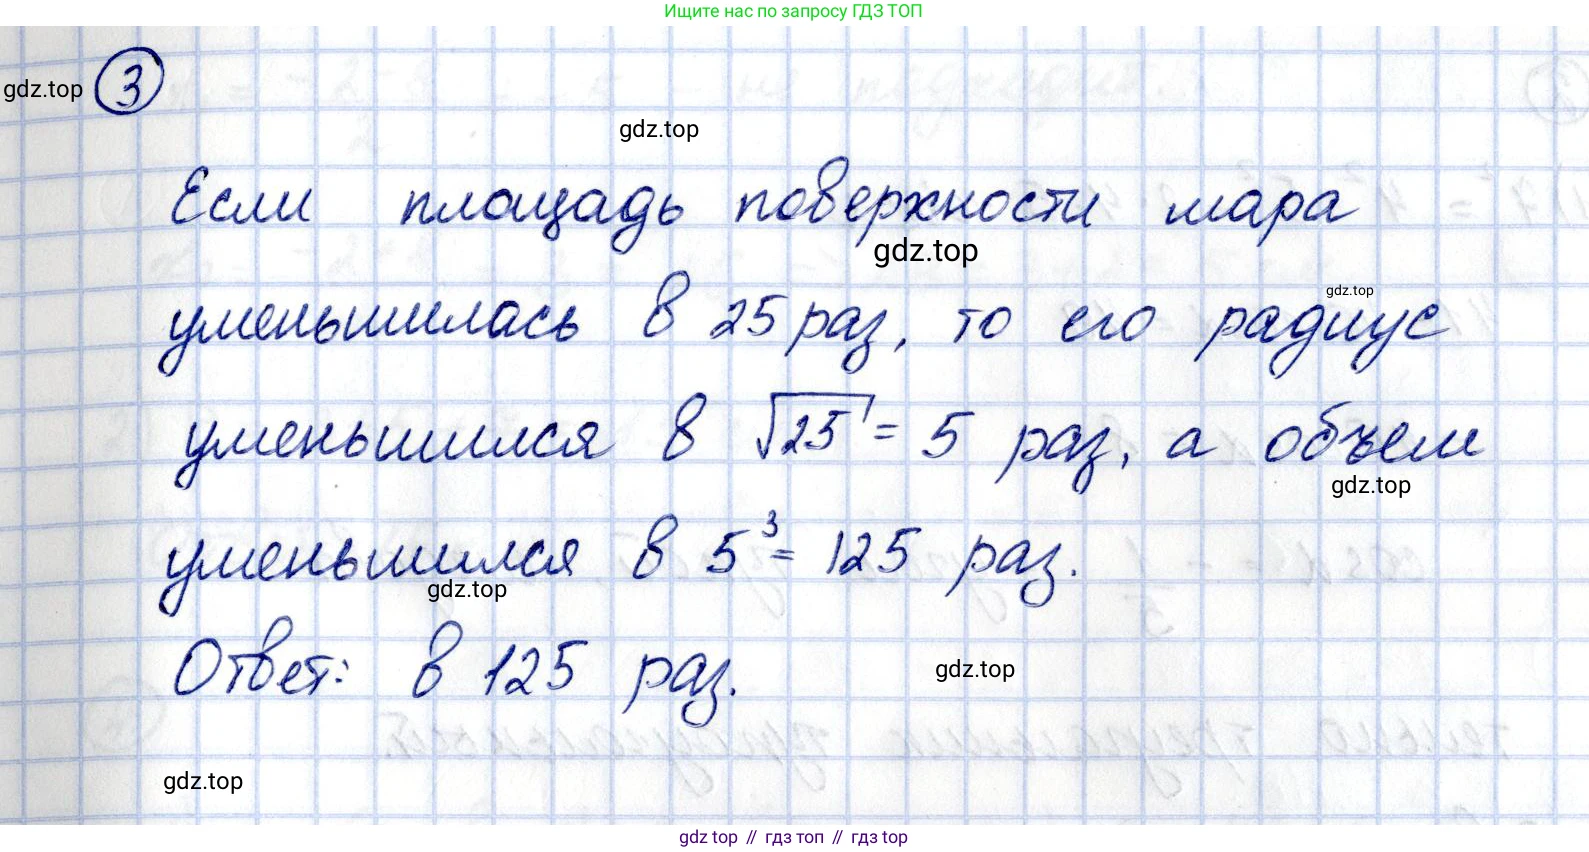 Ищите нас по запросу ГДЗ ТОП
3
gdz.top
gdz.top
Если площадь поверхности шара
gdz.top
gdz.top
уменьшилась в 25 раз, то его радиус
уменьшился в √25 = 5 раз, а объем
gdz.top
уменьшился в 5³ = 125 раз.
gdz.top
Ответ: в 125 раз.
gdz.top
gdz.top
gdz top // гдз топ // гдз top